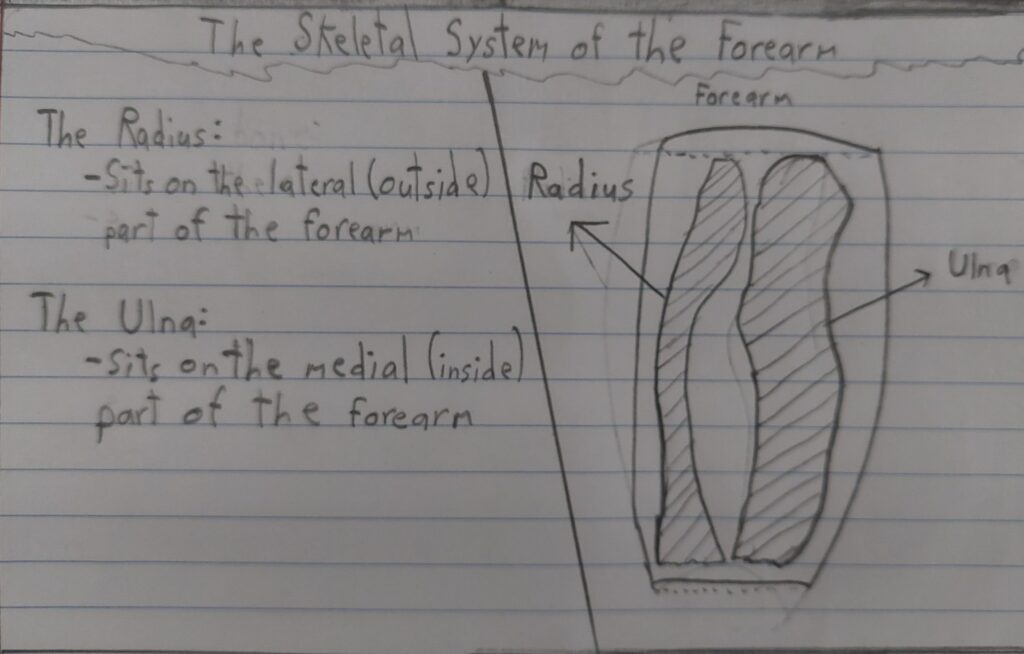 The Skeletal System of the Forearm
The Radius:
-Sits on the lateral (outside)
part of the forearm
The Ulna:
-Sits on the medial (inside)
part of the forearm
Forearm
Radius
Ulna